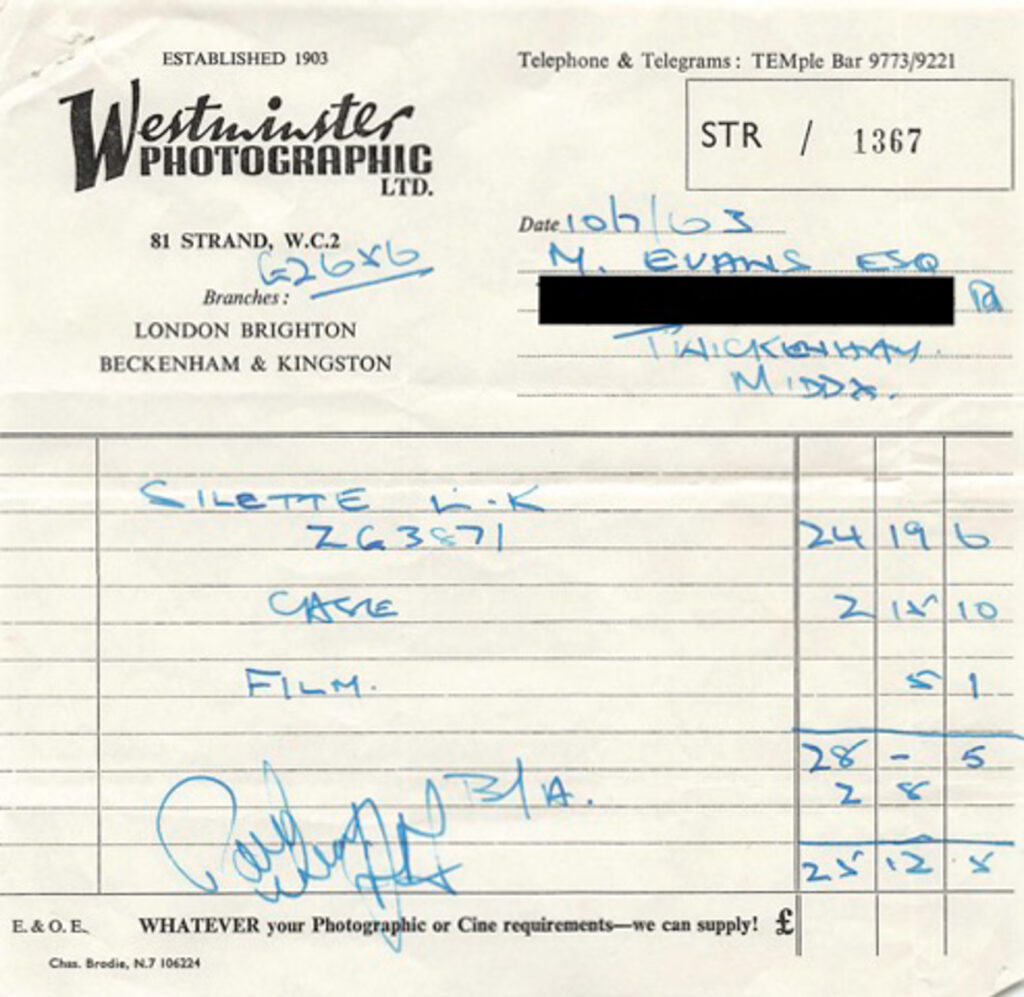 ESTABLISHED 1903
Westminster
PHOTOGRAPHIC
LTD.
81 STRAND, W.C.2
G2686
Branches:
LONDON BRIGHTON
BECKENHAM & KINGSTON
Telephone & Telegrams: TEMple Bar 9773/9221
STR / 1367
Date 10/7/63
M. EVANS ESQ
Rd
TWICKENHAM.
MIDDX.
SILETTE L.K
ZG3871 24 19 6
CASE 2 15 10
FILM. 5 1
28 - 5
B/A. 2 8
25 12 5
E. & O. E. WHATEVER your Photographic or Cine requirements—we can supply! £
Chas. Brodie, N.7 106224